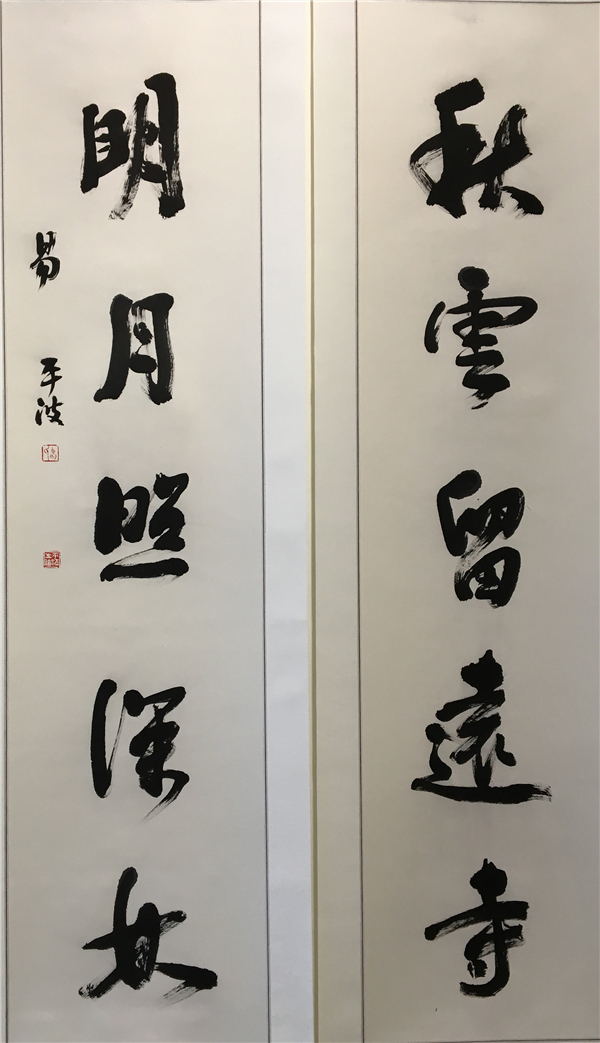 秋雲留遠寺
明月照深女
易平波